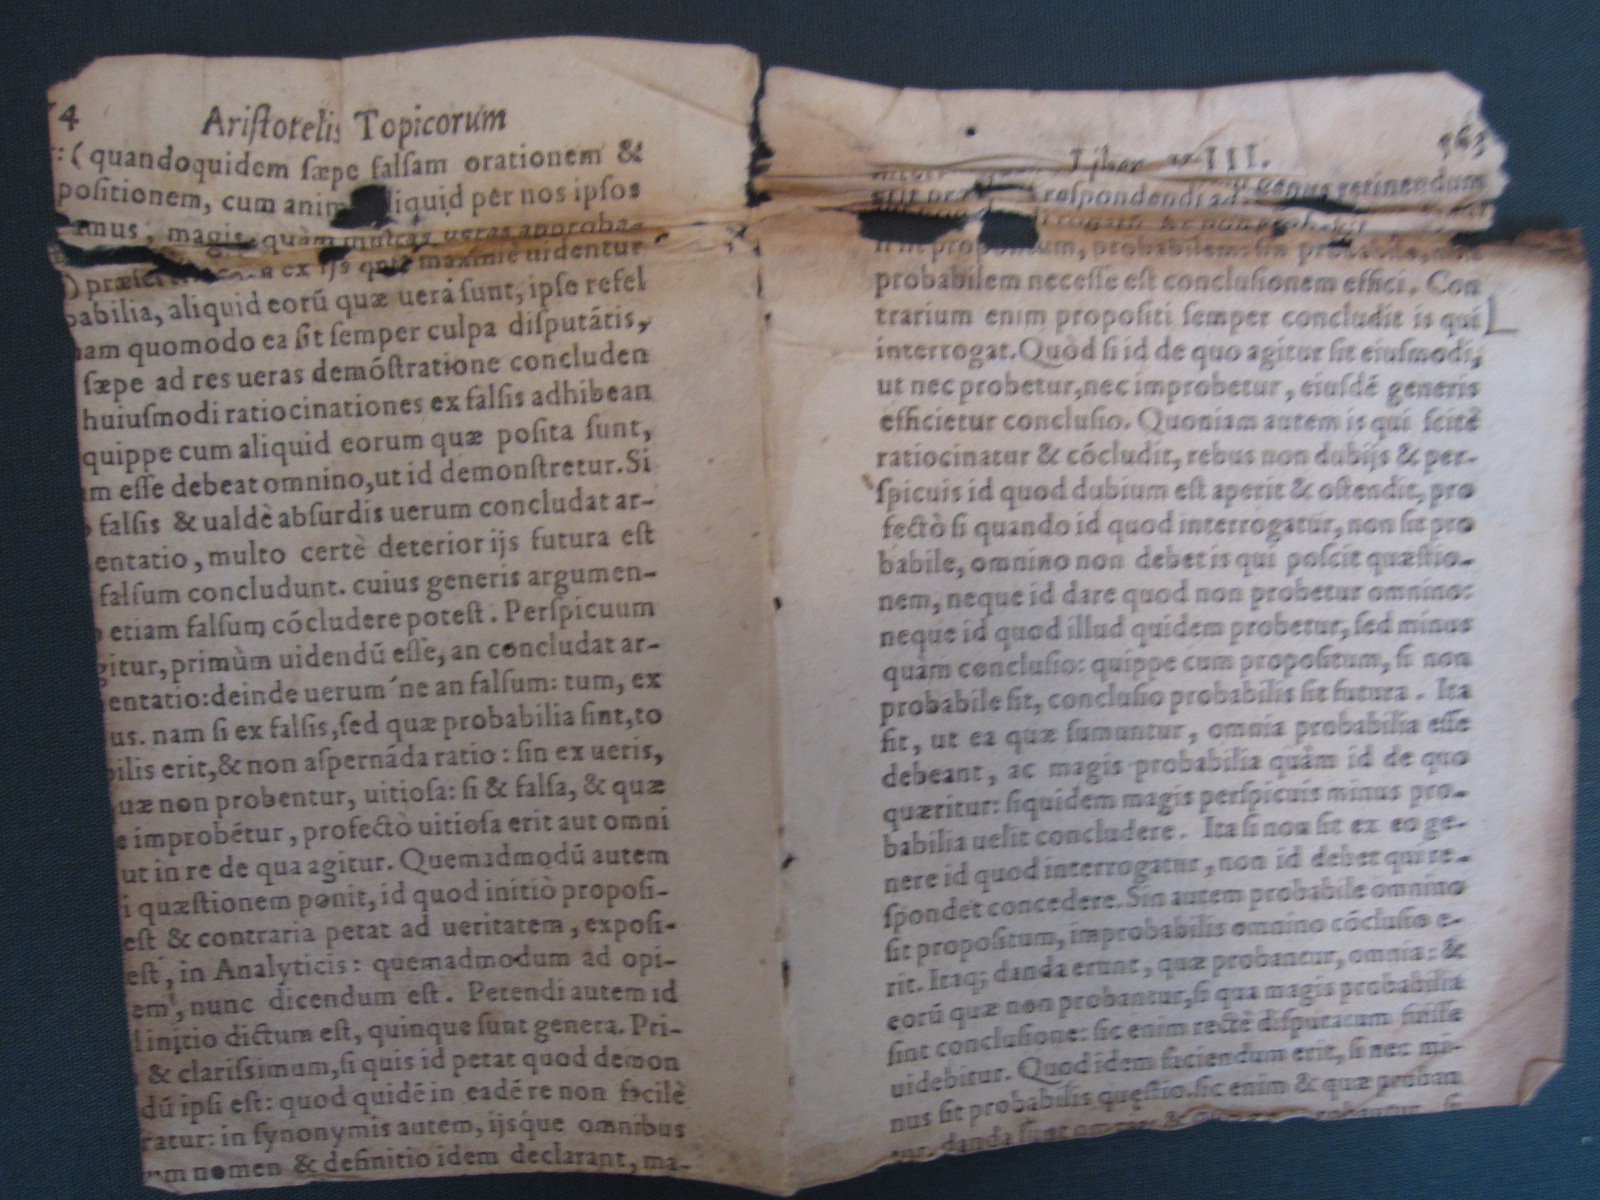 4
Ariſtotelis Topicorum
: ( quandoquidem ſæpe falſam orationem &
poſitionem, cum anim liquid per nos ipſos
amus, magis quàm multas ueras approba-
ex ijs quæ maximè uidentur
babilia, aliquid eorū quæ uera ſunt, ipſe refel
nam quomodo ea ſit ſemper culpa diſputātis,
ſæpe ad res ueras demóſtratione concluden
huiuſmodi ratiocinationes ex falſis adhibean
quippe cum aliquid eorum quæ poſita ſunt,
m eſſe debeat omnino, ut id demonſtretur. Si
falſis & ualdè abſurdis uerum concludat ar-
entatio, multo certè deterior ijs futura eſt
falſum concludunt. cuius generis argumen-
etiam falſum cócludere poteſt. Perſpicuum
gitur, primùm uidendū eſſe, an concludat ar-
entatio: deinde uerum'ne an falſum: tum, ex
us. nam ſi ex falſis, ſed quæ probabilia ſint, to
bilis erit, & non aſpernáda ratio: ſin ex ueris,
uæ non probentur, uitioſa: ſi & falſa, & quæ
e improbétur, profectò uitioſa erit aut omni
ut in re de qua agitur. Quemadmodū autem
i quæſtionem ponit, id quod initiò propoſi-
eſt & contraria petat ad ueritatem, expoſi-
eſt, in Analyticis: quemadmodum ad opi-
em, nunc dicendum eſt. Petendi autem id
initio dictum eſt, quinque ſunt genera. Pri-
& clariſsimum, ſi quis id petat quod demon
dū ipſi eſt: quod quidē in eadē re non facilè
ratur: in ſynonymis autem, ijsque omnibus
um nomen & definitio idem declarant, ma-
Liber VIII.
563
reſpondendi ad genus retinendum
& non probabit
propoſitum, probabilem: ſin
probabilem neceſſe eſt concluſionem effici. Con
trarium enim propoſiti ſemper concludit is qui
interrogat. Quòd ſi id de quo agitur ſit eiuſmodi,
ut nec probetur, nec improbetur, eiuſdē generis
efficietur concluſio. Quoniam autem is qui ſcitè
ratiocinatur & cócludit, rebus non dubijs & per-
ſpicuis id quod dubium eſt aperit & oſtendit, pro
fectò ſi quando id quod interrogatur, non ſit pro
babile, omnino non debet is qui poſcit quæſtio-
nem, neque id dare quod non probetur omnino:
neque id quod illud quidem probetur, ſed minus
quàm concluſio: quippe cum propoſitum, ſi non
probabile ſit, concluſio probabilis ſit futura. Ita
fit, ut ea quæ ſumuntur, omnia probabilia eſſe
debeant, ac magis probabilia quàm id de quo
quæritur: ſiquidem magis perſpicuis minus pro-
babilia uelit concludere. Ita ſi non ſit ex eo ge-
nere id quod interrogatur, non id debet qui re-
ſpondet concedere. Sin autem probabile omnino
ſit propoſitum, improbabilis omnino cócluſio e-
rit. Itaq; danda erunt, quæ probantur, omnia: &
eorū quæ non probantur, ſi qua magis probabilia
ſint concluſione: ſic enim rectè diſputatum fuiſſe
uidebitur. Quod idem faciendum erit, ſi nec mi-
nus ſit probabilis quęſtio. ſic enim & quæ proban
tur, danda ſunt omnia: &